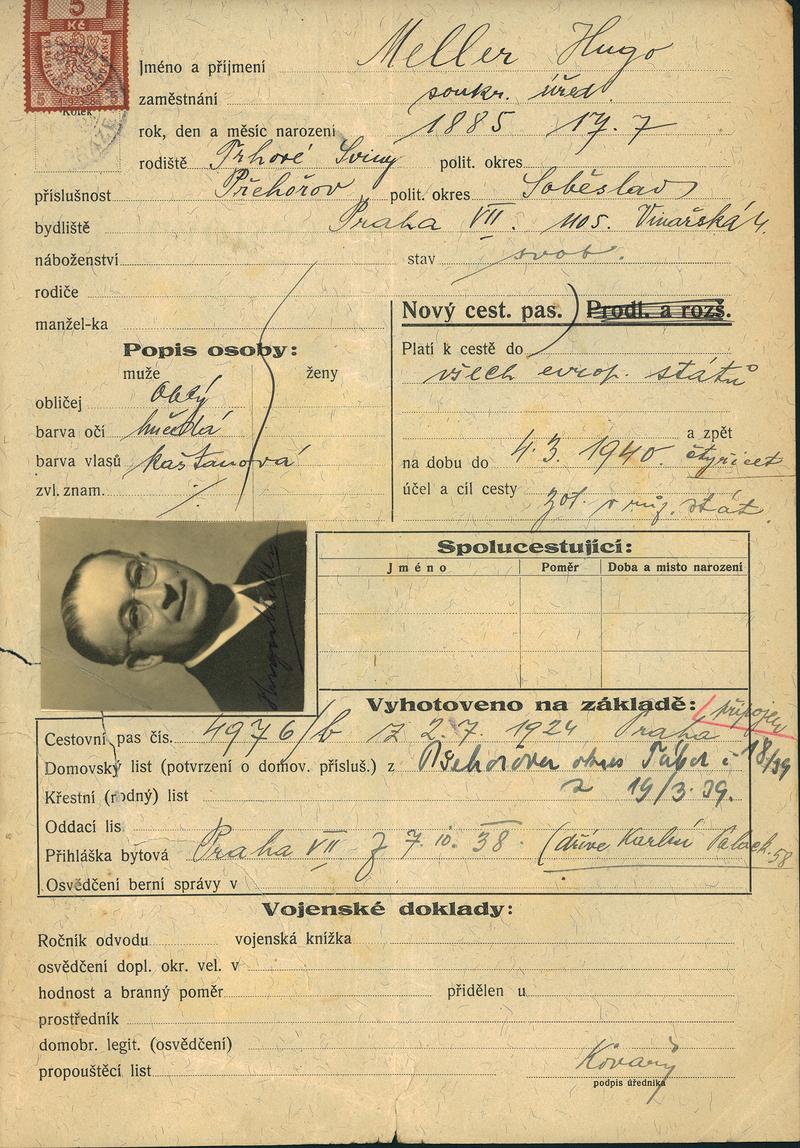 5
Kč
5 1938 5
Kolek
Jméno a příjmení Meller Hugo
zaměstnání soukr. úřed.
rok, den a měsíc narození 1885 17. 7
rodiště Trhové Sviny polit. okres
příslušnost Přehořov polit. okres Soběslav
bydliště Praha VII. 1105. Vinařská 4.
náboženství stav svob.
rodiče
manžel-ka
Nový cest. pas. Prodl. a rozš.
Popis osoby:
muže ženy
obličej oblý
barva očí hnědá
barva vlasů kaštanová
zvl. znam.
Platí k cestě do
všech evrop. států
a zpět
na dobu do 4. 3. 1940. čtyřicet
účel a cíl cesty
stát.
Spolucestující:
Jméno Poměr Doba a místo narození
Hugo Meller
Vyhotoveno na základě: připojen
Cestovní pas čís. 4976/b z 2. 7. 1924 Praha
Domovský list (potvrzení o domov. přísluš.) z Přehořov okres Tábor č 18/39
Křestní (rodný) list z 19/3. 39.
Oddací lis
Přihláška bytová Praha VII z 7. 10. 38. (dříve Karlín Palack. 58
Osvědčení berní správy v
Vojenské doklady:
Ročník odvodu vojenská knížka
osvědčení dopl. okr. vel. v
hodnost a branný poměr přidělen u
prostředník
domobr. legit. (osvědčení)
propouštěcí list
Kovařý
podpis úředníka